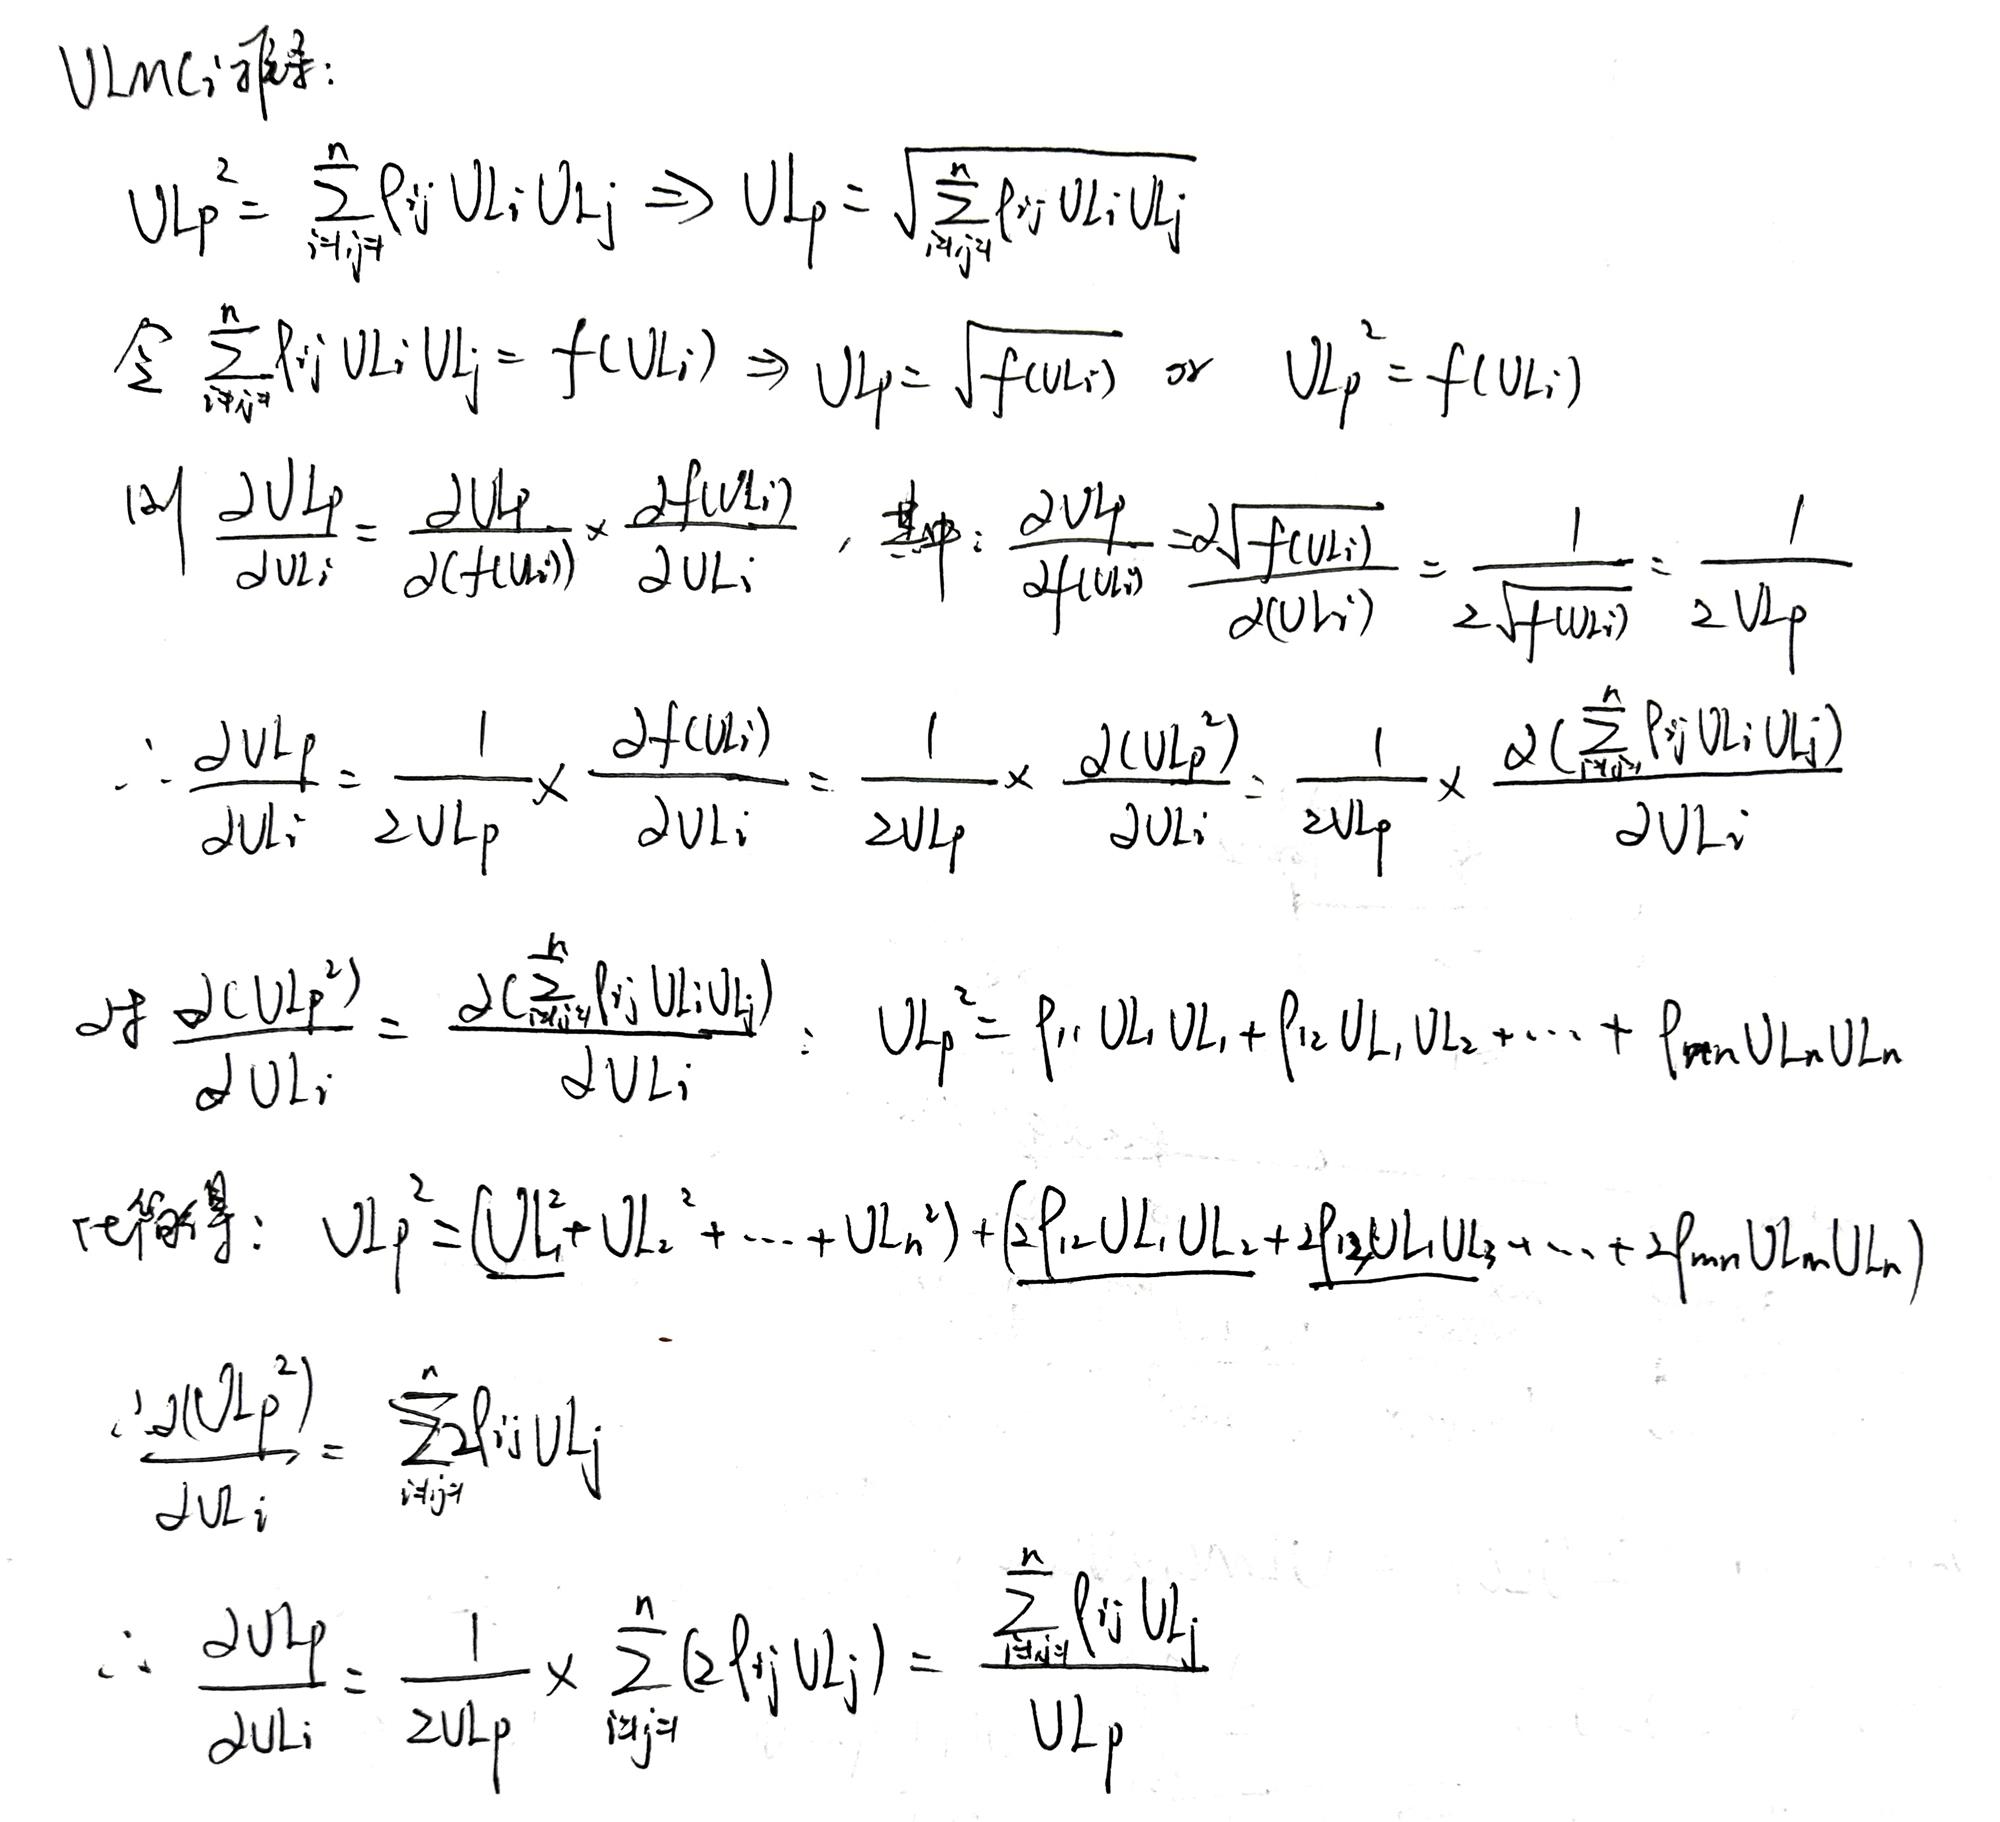 ULMCi推导:
ULp² = Σ^n_{i=1,j=1} ρij ULi ULj ⇒ ULp = √(Σ^n_{i=1,j=1} ρij ULi ULj)
令 Σ^n_{i=1,j=1} ρij ULi ULj = f(ULi) ⇒ ULp = √f(ULi) or ULp² = f(ULi)
则 ∂ULp/∂ULi = ∂ULp/∂(f(ULi)) × ∂f(ULi)/∂ULi , 其中: ∂ULp/∂f(ULi) = ∂√f(ULi)/∂(ULi) = 1/2√f(ULi) = 1/2ULp
∴ ∂ULp/∂ULi = 1/2ULp × ∂f(ULi)/∂ULi = 1/2ULp × ∂(ULp²)/∂ULi = 1/2ULp × ∂(Σ^n_{i=1,j=1} ρij ULi ULj)/∂ULi
对 ∂(ULp²)/∂ULi = ∂(Σ^n_{i=1,j=1} ρij ULi ULj)/∂ULi : ULp² = ρ11 UL1 UL1 + ρ12 UL1 UL2 + ··· + ρnn ULn ULn
化简得: ULp² = (UL1² + UL2² + ··· + ULn²) + (2ρ12 UL1 UL2 + 2ρ13 UL1 UL3 + ··· + 2ρmn ULm ULn)
∴ ∂(ULp²)/∂ULi = Σ^n_{i=1,j=1} 2ρij ULj
∴ ∂ULp/∂ULi = 1/2ULp × Σ^n_{i=1,j=1} (2ρij ULj) = Σ^n_{i=1,j=1} ρij ULj/ULp